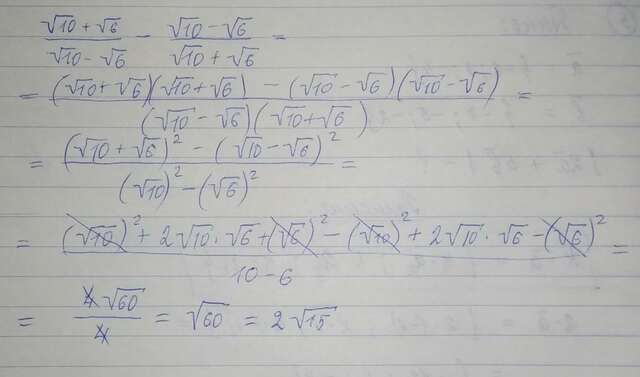 (√10 + √6)/(√10 - √6) - (√10 - √6)/(√10 + √6) =
= ((√10 + √6)(√10 + √6) - (√10 - √6)(√10 - √6))/((√10 - √6)(√10 + √6)) =
= ((√10 + √6)² - (√10 - √6)²)/((√10)² - (√6)²) =
= ((√10)² + 2√10 · √6 + (√6)² - (√10)² + 2√10 · √6 - (√6)²)/(10 - 6) =
= 4√60/4 = √60 = 2√15